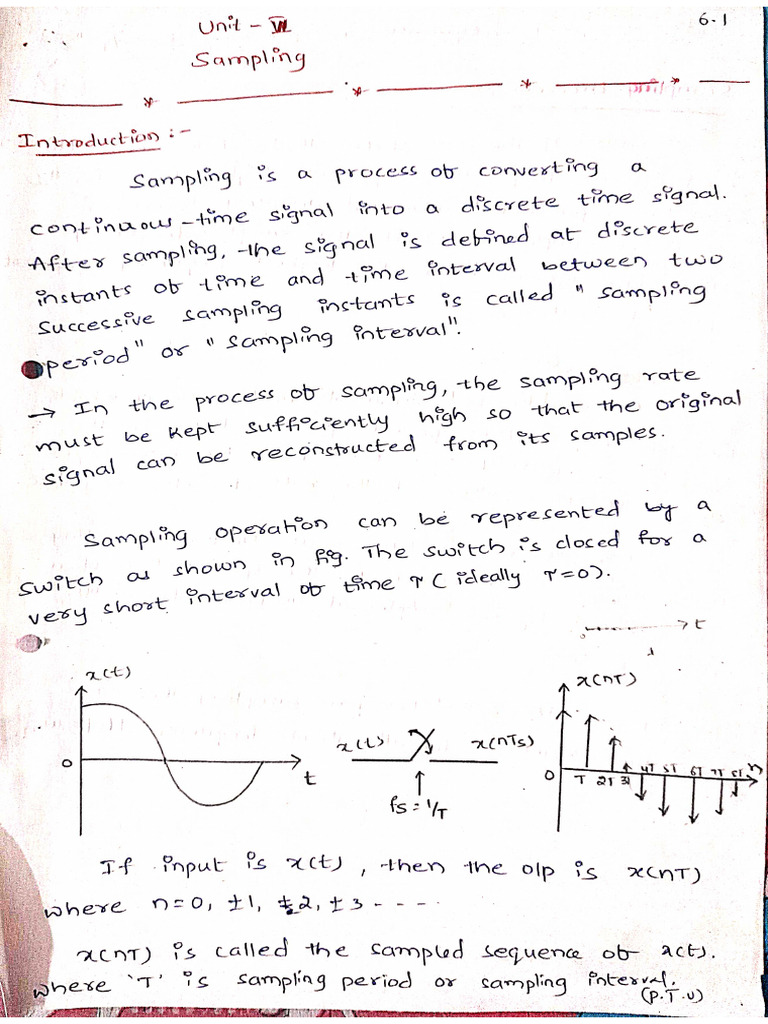 6.1
Unit - VI
Sampling
Introduction :-
Sampling is a process of converting a
continuous-time signal into a discrete time signal.
After sampling, the signal is defined at discrete
instants of time and time interval between two
successive sampling instants is called "sampling
period" or "sampling interval".
→ In the process of sampling, the sampling rate
must be kept sufficiently high so that the original
signal can be reconstructed from its samples.
Sampling operation can be represented by a
switch as shown in fig. The switch is closed for a
very short interval of time τ (ideally τ=0).
t
x(t)
0
t
x(t)
x(nTs)
fs = 1/T
x(nT)
0 T 2T 3T 4T 5T 6T 7T 8T n
If input is x(t), then the o/p is x(nT)
where n=0, ±1, ±2, ±3 - - - -
x(nT) is called the sampled sequence of x(t).
where 'T' is sampling period or sampling interval.
(P.T.O)